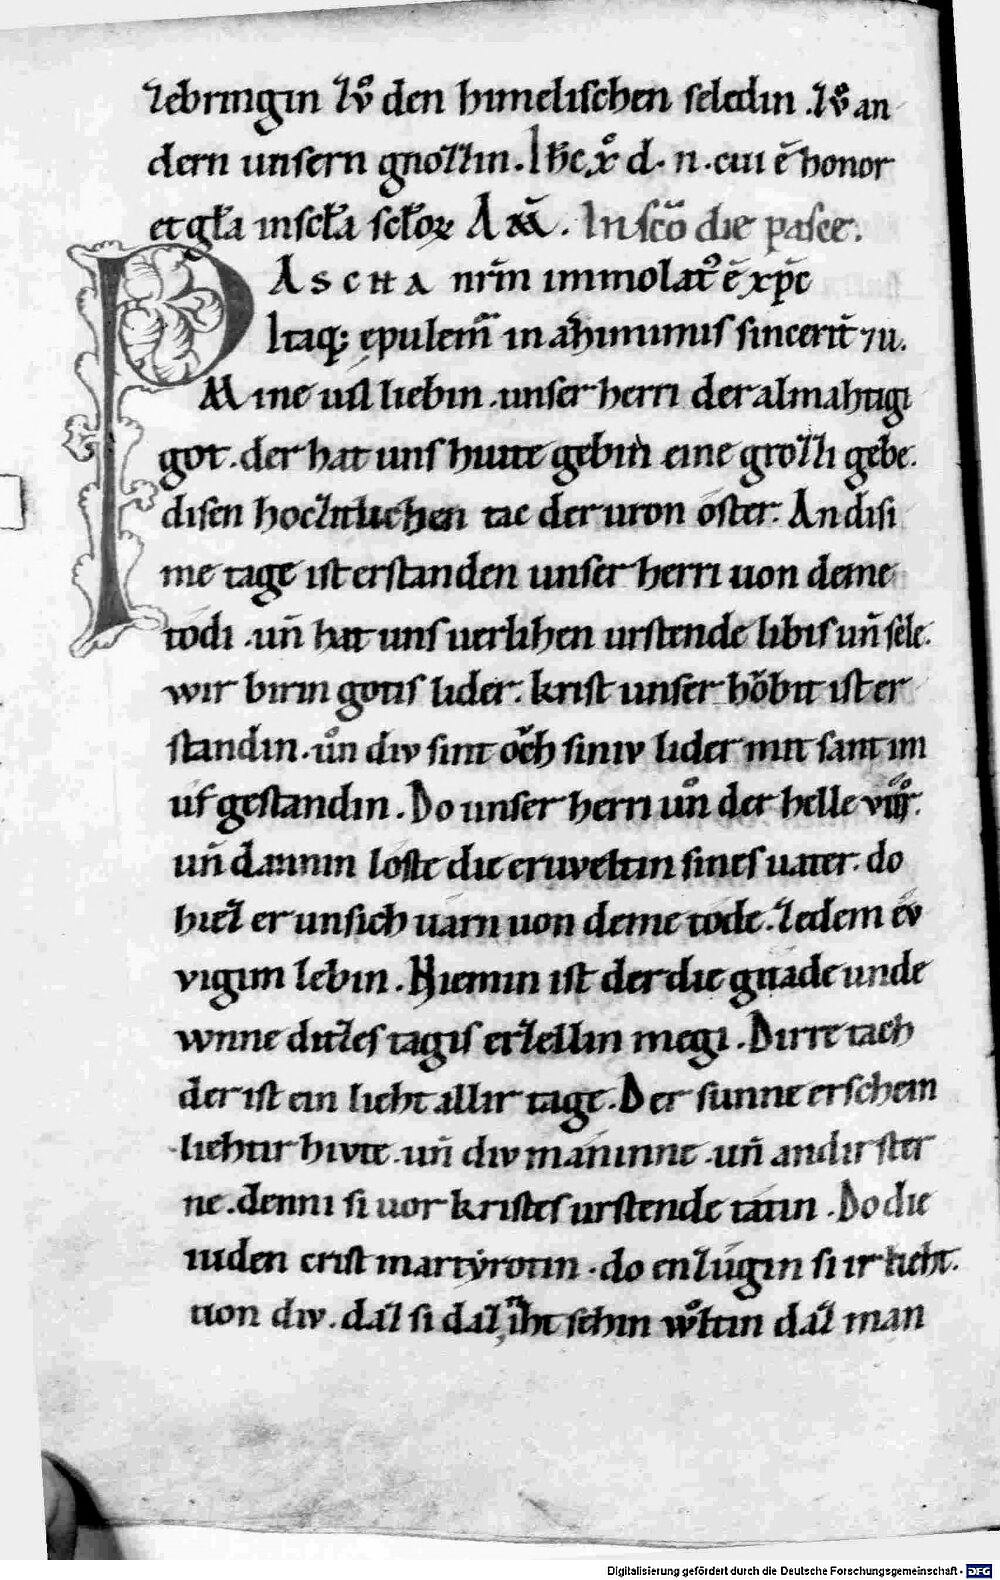 zebringin zvͦ den himelischen seledin . zvͦ an
dern unsern gnozzin . Ihc xͦ d. n. cui ē honor
et gl̄a in scl̄a scl̄oꝝ AM̄. In sc̄o die pasce.
PAscha nr̄m immolatꝰ ē xp̄c
Itaq; ępulem̄ in azimimis sincerit̄ ⁊ u.
Mine uil liebin . unser herri der almahtigi
got . der hat uns huite gebin eine grozzi gebe.
disen hoczitlichen tac der uron oster. An disi
me tage ist erstanden unser herri uon deme
todi . un̄ hat uns uerlihen urstende libis un̄ sele.
wir birin gotis lider. krist unser hoͮbit ist er
standin . uͦn div sint oͮch siniv lider mit samt im
uf gestandin . Do unser herri uͦn der helle vͦͦr.
un̄ dannin loste die eruveltin sines uater. do
hiez er unsich uarn uon deme tode. zedem ev
vigim lebin . Niemin ist der die gnade unde
wnne ditzes tagis erzellin megi . Dirre tach
der ist ein lieht allir tage . Der sunne erschein
liehtir hivte . un̄ div maninne . un̄ andir ster
ne . denni si uor kristes urstende tatin . Do die
iuden crist martyrotin . do enzugin si ir lieht.
uon div . daz si daz niht sehin wͦltin daz man
Digitalisierung gefördert durch die Deutsche Forschungsgemeinschaft - DFG